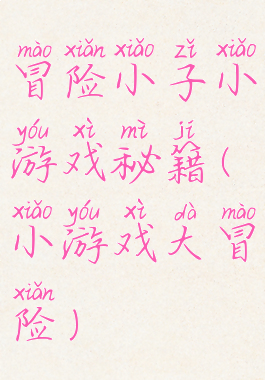 mào xiǎn xiǎo zǐ xiǎo
冒险小子小
yóu xì mì jí
游戏秘籍(
xiǎo yóu xì dà mào
小游戏大冒
xiǎn
险)